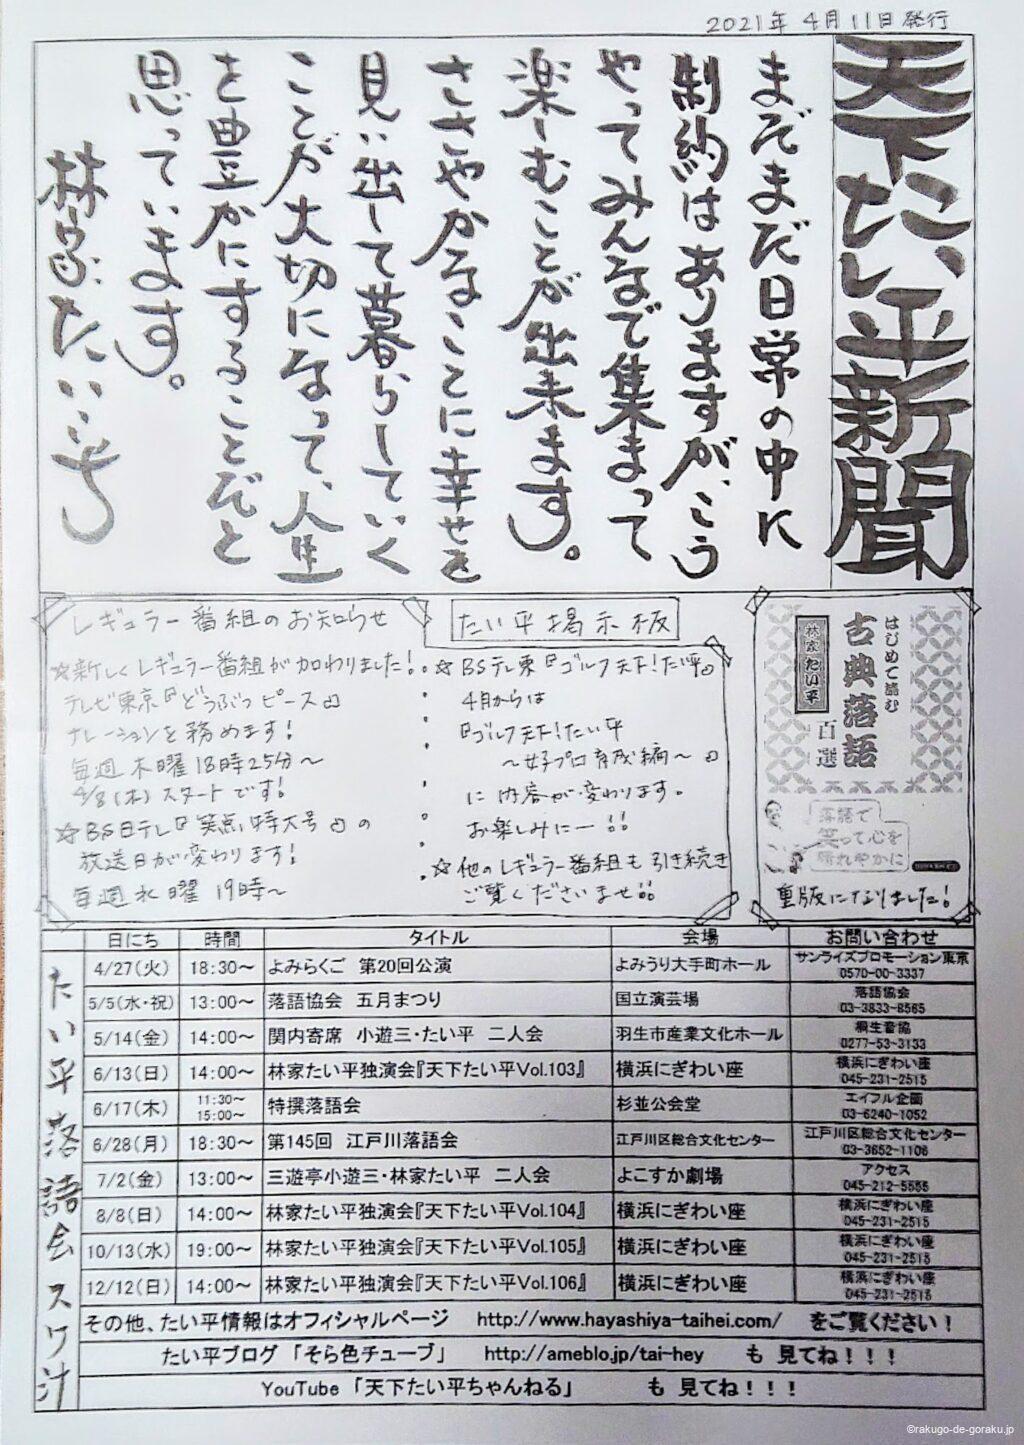 2021年 4月11日発行
天下たい平新聞
まだまだ日常の中に
制約はありますが、こう
やってみんなで集まって
楽しむことが出来ます。
ささやかなことに幸せを
見い出して暮らしていく
ことが大切になって、人生
を豊かにすることだと
思っています。
林家たい平
レギュラー番組のお知らせ
☆新しくレギュラー番組が加わりました!
テレビ東京『どうぶつピース』
ナレーションを務めます!
毎週木曜18時25分〜
4/8(木)スタートです!
☆BS日テレ『笑点 特大号』の
放送日が変わります!
毎週水曜 19時〜
たい平掲示板
☆BSテレ東『ゴルフ天下!たい平』
4月からは
『ゴルフ天下!たい平
〜女子プロ育成編〜』
に内容が変わります。
お楽しみにー!!
☆他のレギュラー番組も引き続き
ご覧くださいませ!!
はじめて読む
古典落語
百選
林家たい平
落語で
笑って心を
晴れやかに
重版になりました!
たい平落語会スケ汁
日にち 時間 タイトル 会場 お問い合わせ
4/27(火) 18:30〜 よみらくご 第20回公演 よみうり大手町ホール サンライズプロモーション東京 0570-00-3337
5/5(水・祝) 13:00〜 落語協会 五月まつり 国立演芸場 落語協会 03-3833-8565
5/14(金) 14:00〜 関内寄席 小遊三・たい平 二人会 羽生市産業文化ホール 桐生音協 0277-53-3133
6/13(日) 14:00〜 林家たい平独演会『天下たい平Vol.103』 横浜にぎわい座 横浜にぎわい座 045-231-2515
6/17(木) 11:30〜 15:00〜 特撰落語会 杉並公会堂 エイフル企画 03-6240-1052
6/28(月) 18:30〜 第145回 江戸川落語会 江戸川区総合文化センター 江戸川区総合文化センター 03-3652-1106
7/2(金) 13:00〜 三遊亭小遊三・林家たい平 二人会 よこすか劇場 アクセス 045-212-5555
8/8(日) 14:00〜 林家たい平独演会『天下たい平Vol.104』 横浜にぎわい座 横浜にぎわい座 045-231-2515
10/13(水) 19:00〜 林家たい平独演会『天下たい平Vol.105』 横浜にぎわい座 横浜にぎわい座 045-231-2515
12/12(日) 14:00〜 林家たい平独演会『天下たい平Vol.106』 横浜にぎわい座 横浜にぎわい座 045-231-2515
その他、たい平情報はオフィシャルページ http://www.hayashiya-taihei.com/ をご覧ください!
たい平ブログ 「そら色チューブ」 http://ameblo.jp/tai-hey も 見てね!!!
YouTube 「天下たい平ちゃんねる」 も 見てね!!!
©rakugo-de-goraku.jp